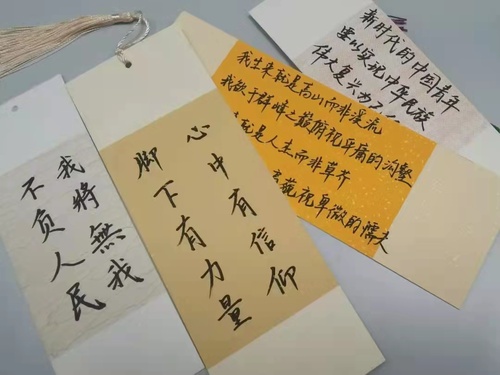 我将無我
不负人民
心中有信仰
脚下有力量
我生来就是高山而非溪流
我欲于群峰之巅俯视平庸的沟壑
就是人杰而非草芥
藐视卑微的懦夫
新时代的中国青年
要以实现中华民族
伟大复兴为